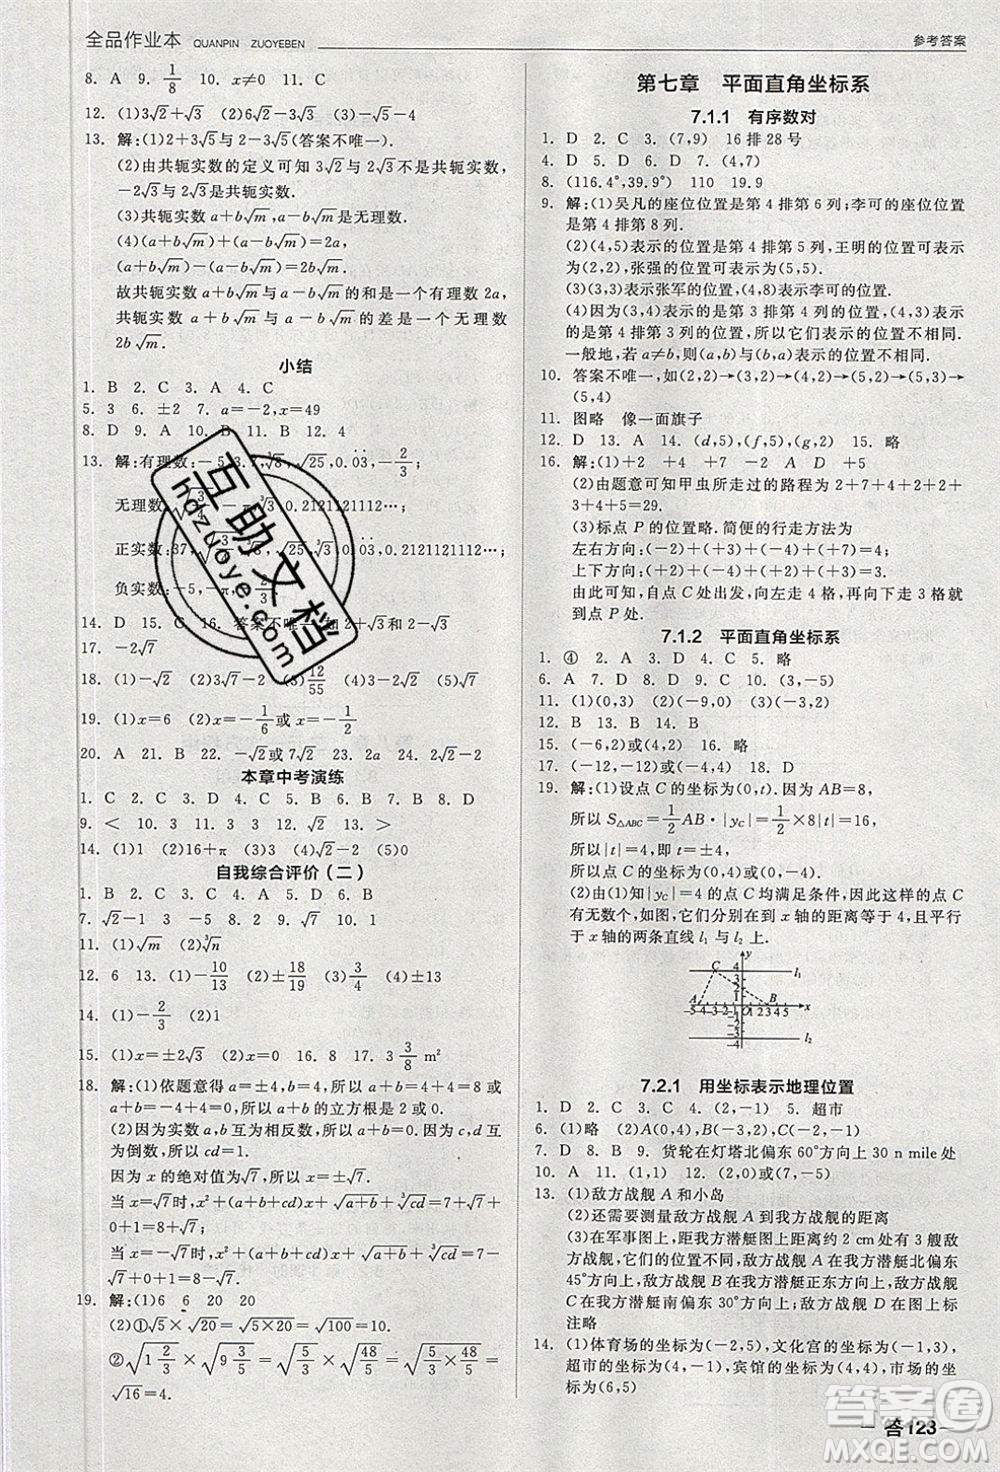 全品作业本 QUANPIN ZUOYEBEN
参考答案
8. A 9. 1/8 10. x≠0 11. C
12. (1)3√2+√3 (2)√2 (3)-√5-4
13. 解:(1)2+3√5与2-3√5(答案不唯一).
(2)由共轭实数的定义可知3√2与2√3不是共轭实数,
-2√3与2√3是共轭实数.
(3)共轭实数a+b√m,a-b√m是无理数.
(4)(a+b√m)+(a-b√m)=2a,
(a+b√m)-(a-b√m)=2b√m.
故共轭实数a+b√m与a-b√m的和是一个有理数2a,
共轭实数a+b√m与a-b√m的差是一个无理数
2b√m.
小结
1. B 2. C 3. A 4. C
5. 3 6. ±2 7. a=-2,x=49
8. D 9. A 10. B 11. B 12. 4
14. D 15. C 16. 答案不唯一,如√2和√8
17. -√7
18. (1)-√2 (2)-√3 (3)12/55 (4)3√2 (5)√7
19. (1)x=6 (2)x=-1/6或x=-1/2
20. A 21. B 22. -√2或7√2 23. 2a 24. C
本章中考演练
1. C 2. B 3. B 4. C 5. D 6. C 7. B 8. D
9. < 10. 3 11. 3 12. √2 13. >
14. (1)1 (2)16+π (3)3 (4)√2 (5)0
自我综合评价(二)
1. B 2. C 3. A 4. A 5. D 6. B
7. -√5 8. 3 -5 9. √5 10. 1
11. (1)√m (2)∛n
12. 6 13. (1)-10/13 (2)±18/19 (3)-4 (4)±13
14. (1)-2/3 (2)1
15. (1)2√2-√3 (2)0 16. 8 17. 3 3/8 m²
18. 解:(1)依题意得a=±4,b=4,当a=4,b=4时,a+b
=4+4=8,所以a+b的立方根为2;当a=-4,b=4时,
a+b=-4+4=0,所以a+b的立方根为0.
(2)因为实数a,b互为相反数,所以a+b=0.因为c,d互
为倒数,所以cd=1.
因为x的绝对值为√7,所以x=√7或x=-√7.
当x=√7时,x²+(a+b+cd)x+√(a+b)+∛cd=7+√7+
0+1=8+√7;
当x=-√7时,x²+(a+b+cd)x+√(a+b)+∛cd=7-√7+
0+1=8-√7.
19. 解:(1)6 6 20 20
(2)①√5×√20=√(5×20)=√100=10.
②√(1 2/3)×√(9 3/5)=√(1 2/3×9 3/5)=√(5/3×48/5)
=√16=4.
第七章 平面直角坐标系
7.1.1 有序数对
1. D 2. C 3. (7,9) 16排28号
4. D 5. D 6. D 7. (4,7)
8. (116.4°,39.9°) 110 19.9
9. 解:(1)吴凡的座位位置是第4排第6列;李可的座位位置
是第4排第8列.
(2)(4,5)表示的位置是第4排第5列,王明的位置可表示
为(2,2),张强的位置可表示为(5,5).
(3)(3,3)表示张军的位置,(4,8)表示李可的位置.
(4)因为(3,4)表示的位置是第3排第4列,(4,3)表示的
是第4排第3列的位置,所以它们表示的位置不相同.
一般地,若a≠b,则(a,b)与(b,a)表示的位置不相同.
10. 答案不唯一,如(2,2)→(3,2)→(4,2)→(5,2)→(5,3)→
(5,4)
11. 图略 像一面旗子
12. D 13. A 14. (d,5),(f,5),(g,2) 15. 略
16. 解:(1)+2 +4 +2 0 +4 D
(2)由题意可知甲虫所走过的路程为2+1+2+1+2+
3+4+5=20.
(3)标点P的位置略.简便的行走方法为
左右方向:(-2)+(+4)+(-2)+(+4)=4;
上下方向:(+2)+(-3)+(+3)+(+1)=3.
由此可知,自点C处出发,向左走4格,再向下走3格就到
到点P处.
7.1.2 平面直角坐标系
1. ④ 2. A 3. D 4. C 5. 略
6. A 7. D 8. D 9. C 10. D
11. (1)(0,3) (2)(-9,0) (3)(-3,2)
12. B 13. B 14. B
15. (-6,2)或(4,2) 16. 略
17. (-12,-12)或(-4,4) 18. D
19. 解:(1)设点C的坐标为(0,t).因为AB=8,
所以S△ABC=1/2AB·|yC|=1/2×8|t|=16,
所以|t|=4,即t=±4,
所以点C的坐标为(0,4)或(0,-4).
(2)由(1)知|yC|=4的点C均满足条件,因此这样的点C
有无数个,如图,它们分别在与x轴的距离等于4,且平行
于x轴的两条直线l₁与l₂上.
7.2.1 用坐标表示地理位置
1. D 2. C 3. B 4. (2,-1) 5. 超市
6. (1)略 (2)A(0,4) B(-3,2) C(-2,-1)
7. D 8. B 9. 货轮在灯塔北偏东60°方向上30 n mile处
10. A 11. (3,1) 12. (2,3)或(7,-5)
13. (1)敌方战舰A和小岛
(2)还需要测量敌方战舰A到我方潜艇的距离
(3)在军事图上,距我方潜艇距离约2 cm处有3艘敌方
战舰,它们的位置不同,敌方战舰A在我方潜艇北偏东
45°方向上,敌方战舰B在我方潜艇正东方向,敌方战舰
C在我方潜艇南偏东20°方向上.
14. (1)体育场的坐标为(-2,5),文化宫的坐标为(-1,3),
超市的坐标为(4,-1),宾馆的坐标为(4,4),市场的坐标
为(6,5)
互助文档
hdzuoye.com
答案圈
MXQE.COM
答123